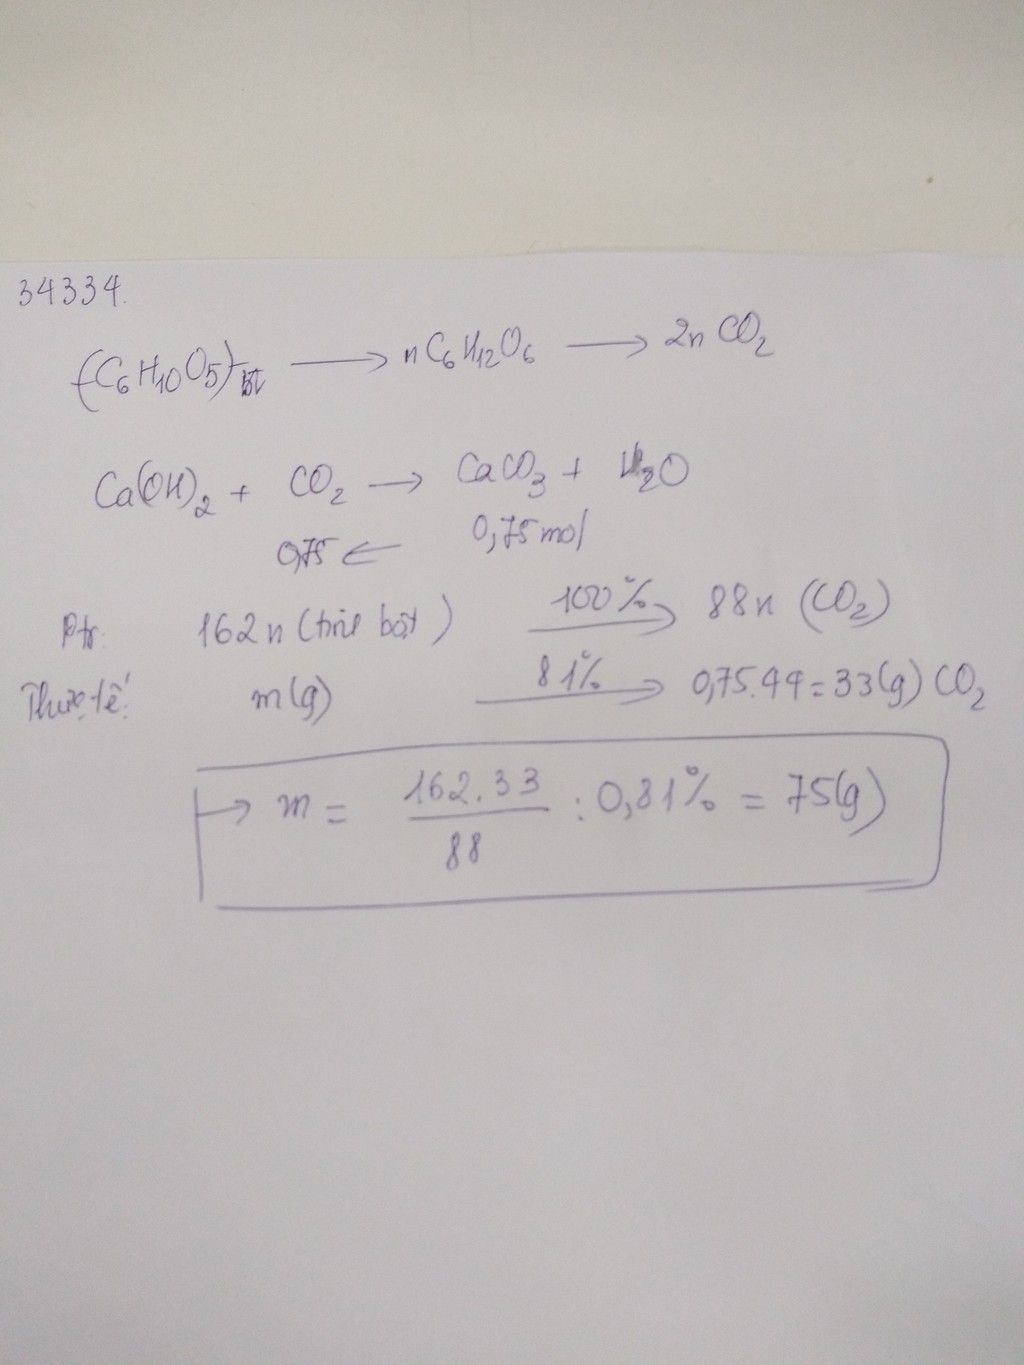 34334.
(C6H10O5)n → nC6H12O6 → 2n CO2
Ca(OH)2 + CO2 → CaCO3 + H2O
0,75 ← 0,75 mol
Ptr: 162n (tinh bột) 100% → 88n (CO2)
Thực tế: m(g) 81% → 0,75.44 = 33(g) CO2
→ m = 162.33 / 88 : 0,81% = 75(g)